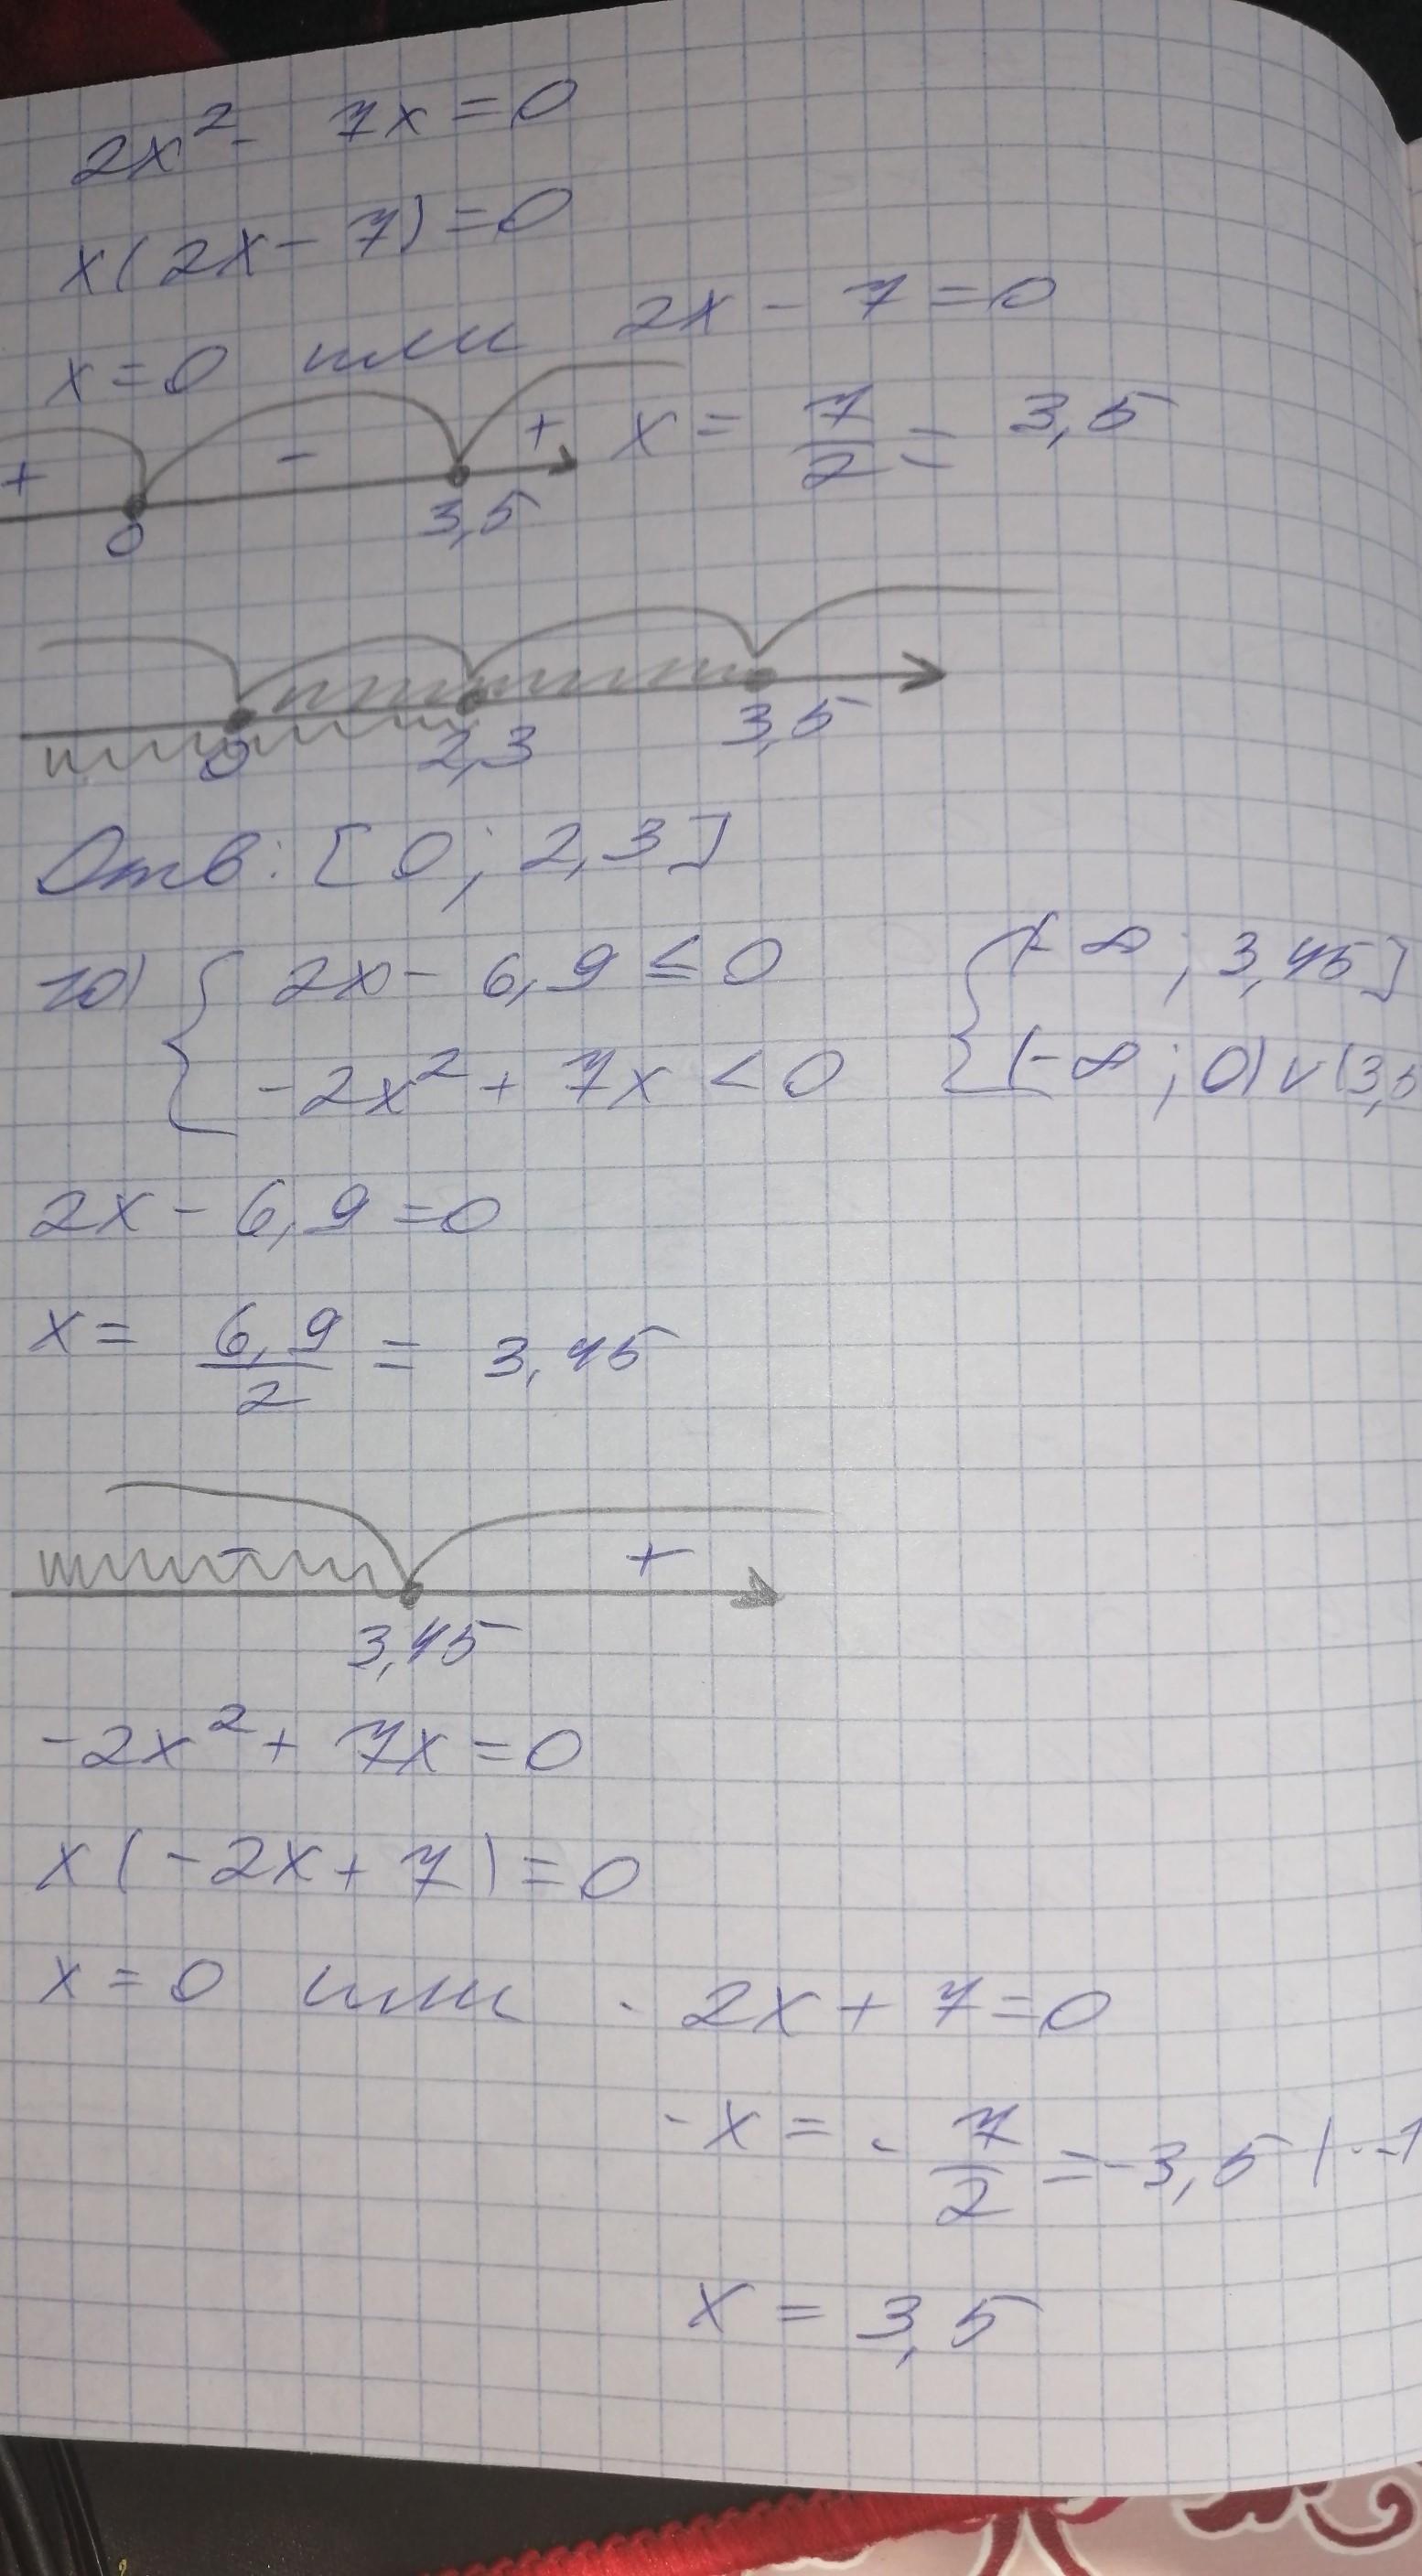 2x² - 7x = 0
x(2x - 7) = 0
x = 0 или 2x - 7 = 0
x = 7/2 = 3,5
+ - +
0 3,5
0 2,3 3,5
Отв: [0; 2,3]
{ 2x - 6,9 ≤ 0 { (-∞; 3,45]
{ -2x² + 7x < 0 { (-∞; 0) ∨ (3,5
2x - 6,9 = 0
x = 6,9/2 = 3,45
- +
3,45
-2x² + 7x = 0
x(-2x + 7) = 0
x = 0 или - 2x + 7 = 0
-x = - 7/2 = -3,5 | · -1
x = 3,5